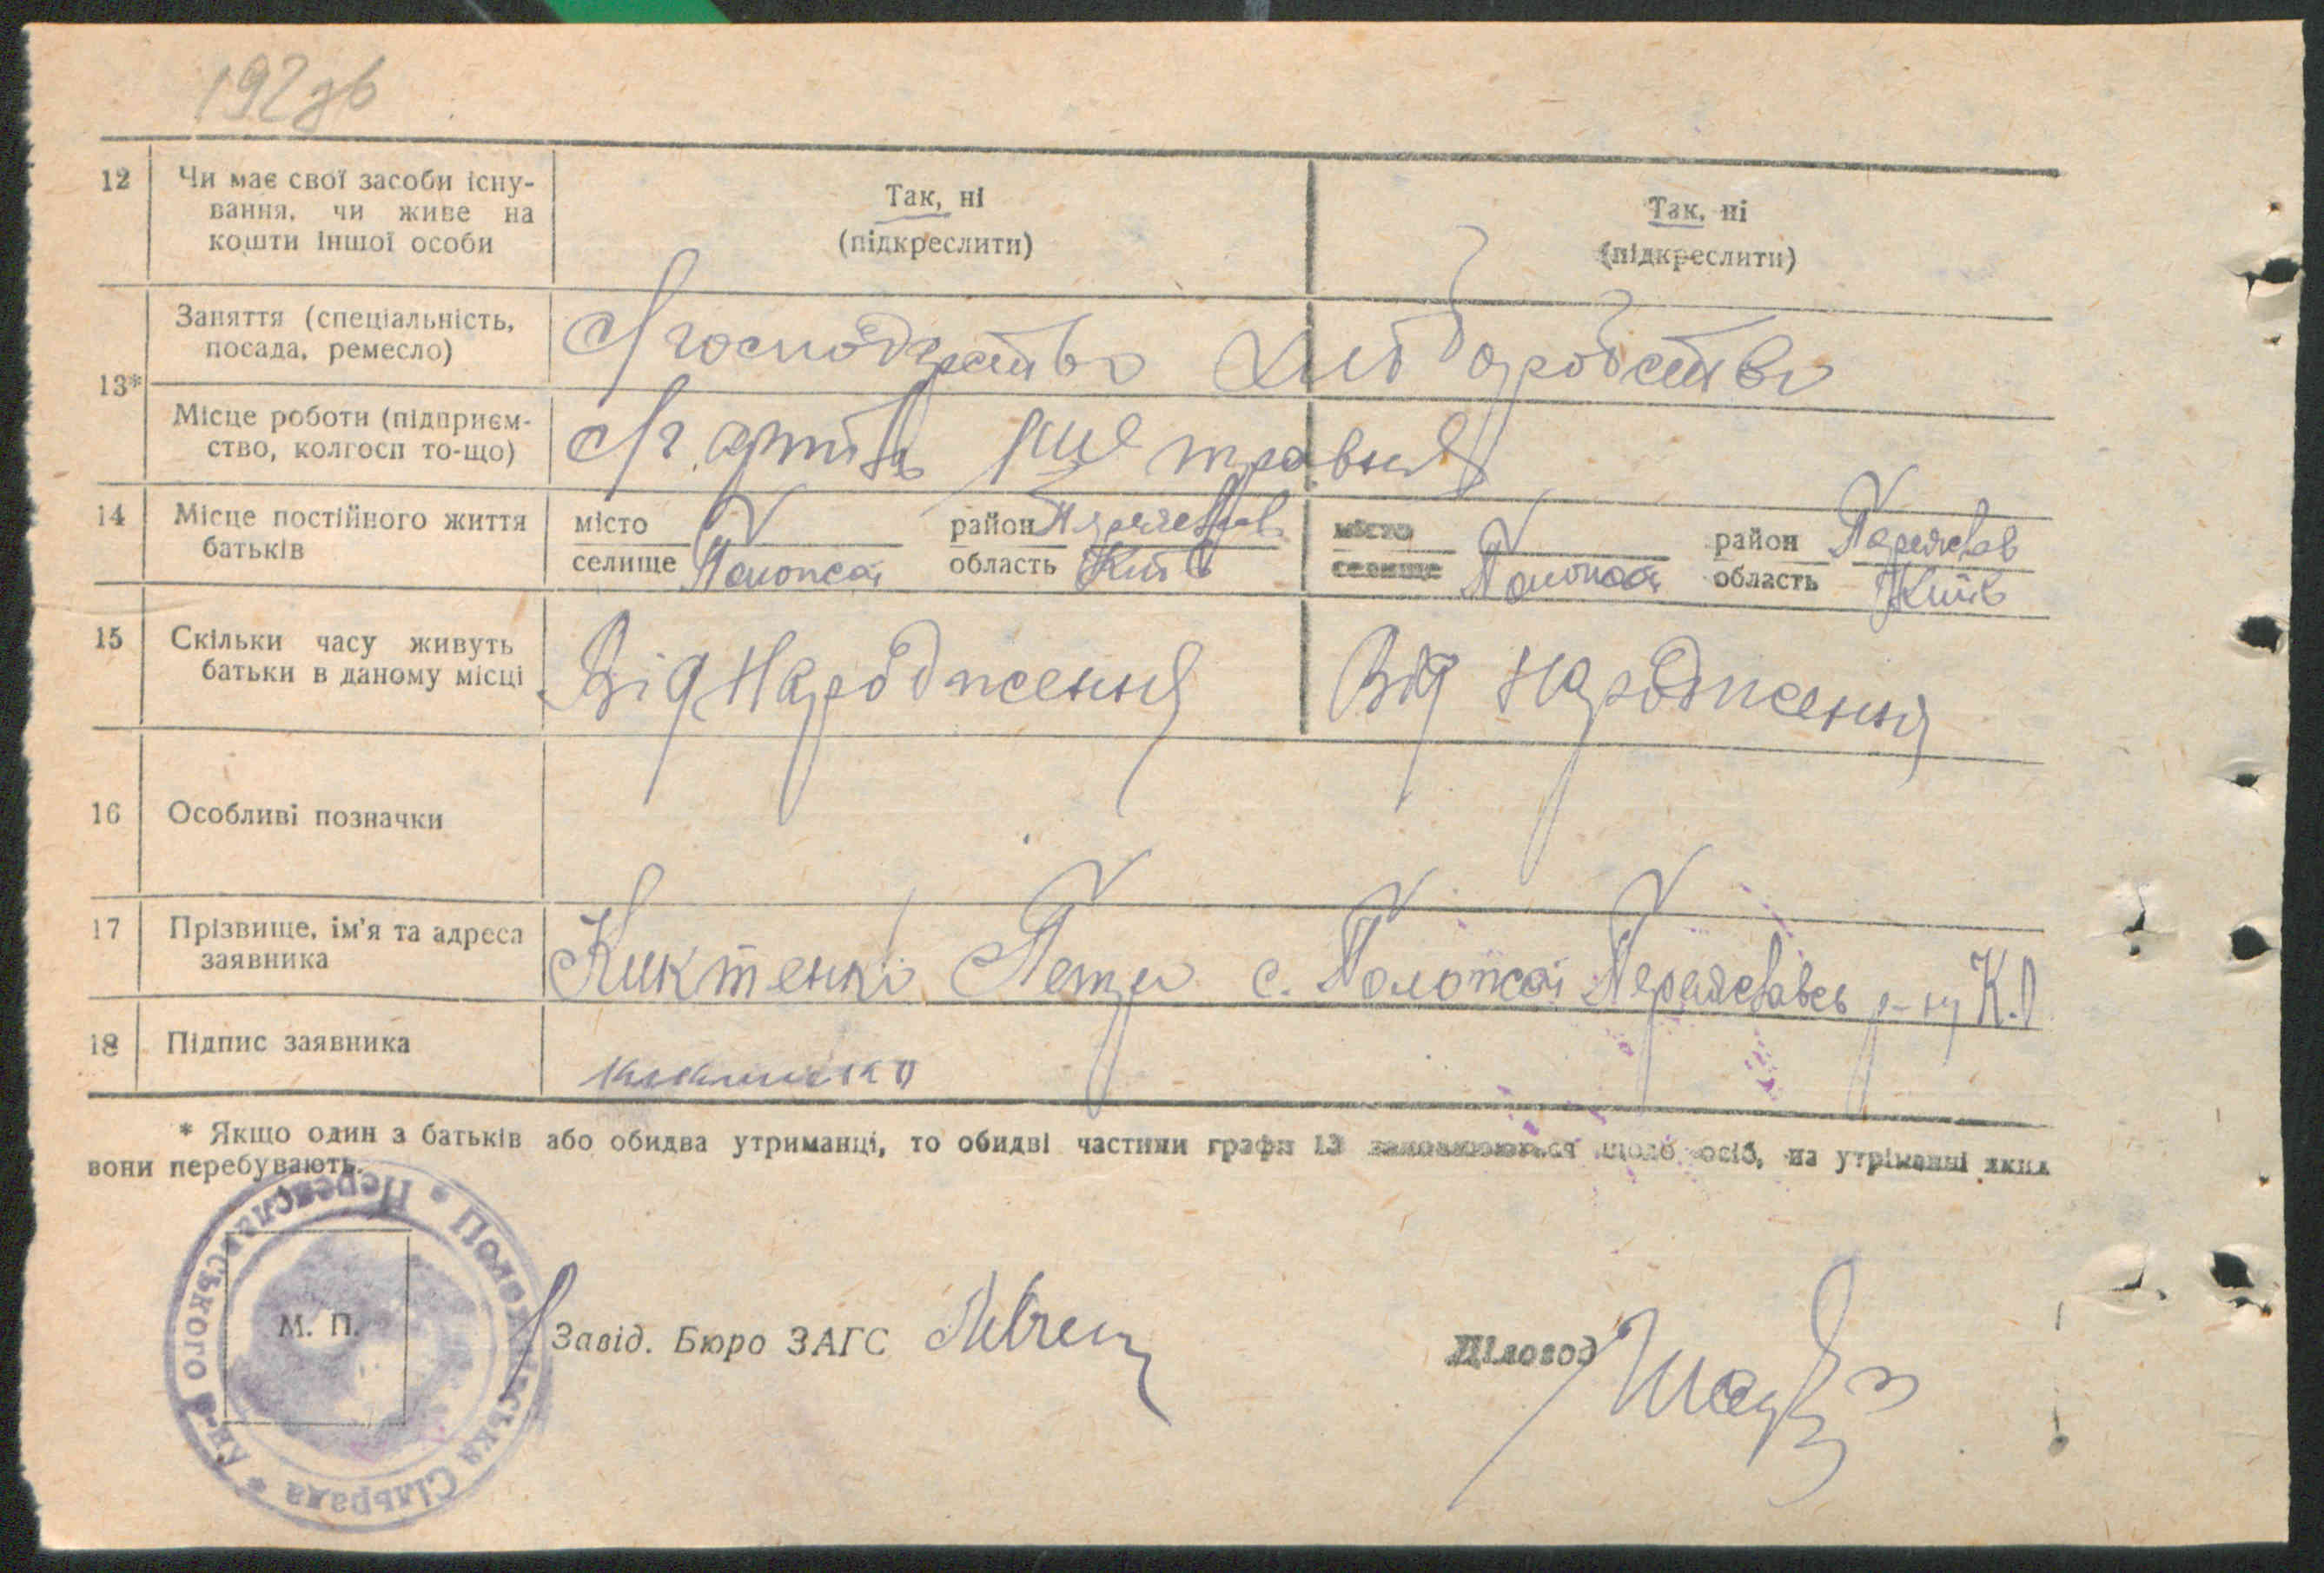 192зв
12 Чи має свої засоби існу-
вання, чи живе на
кошти іншої особи
Так, ні
(підкреслити)
Так, ні
(підкреслити)
13*
Заняття (спеціальність,
посада, ремесло)
С/господарство хліборобство
Місце роботи (підприєм-
ство, колгосп то-що)
С/г. артіль травня
14 Місце постійного життя
батьків
місто
селище Помоклі
район Переяслав
область Київ
місто
селище Помоклі
район Переяслав
область Київ
15 Скільки часу живуть
батьки в даному місці
Від народження
Від народження
16 Особливі позначки
17 Прізвище, ім'я та адреса
заявника
Киктенко Петро с. Помоклі Переяславсь р-ну К.О
18 Підпис заявника
Киктенко
* Якщо один з батьків або обидва утриманці, то обидві частини графи 13 заповнюються щодо осіб, на утріманні яких
вони перебувають.
М. П.
Переяславського * Помоклівська Сільрада *
Завід. Бюро ЗАГС
Діловод